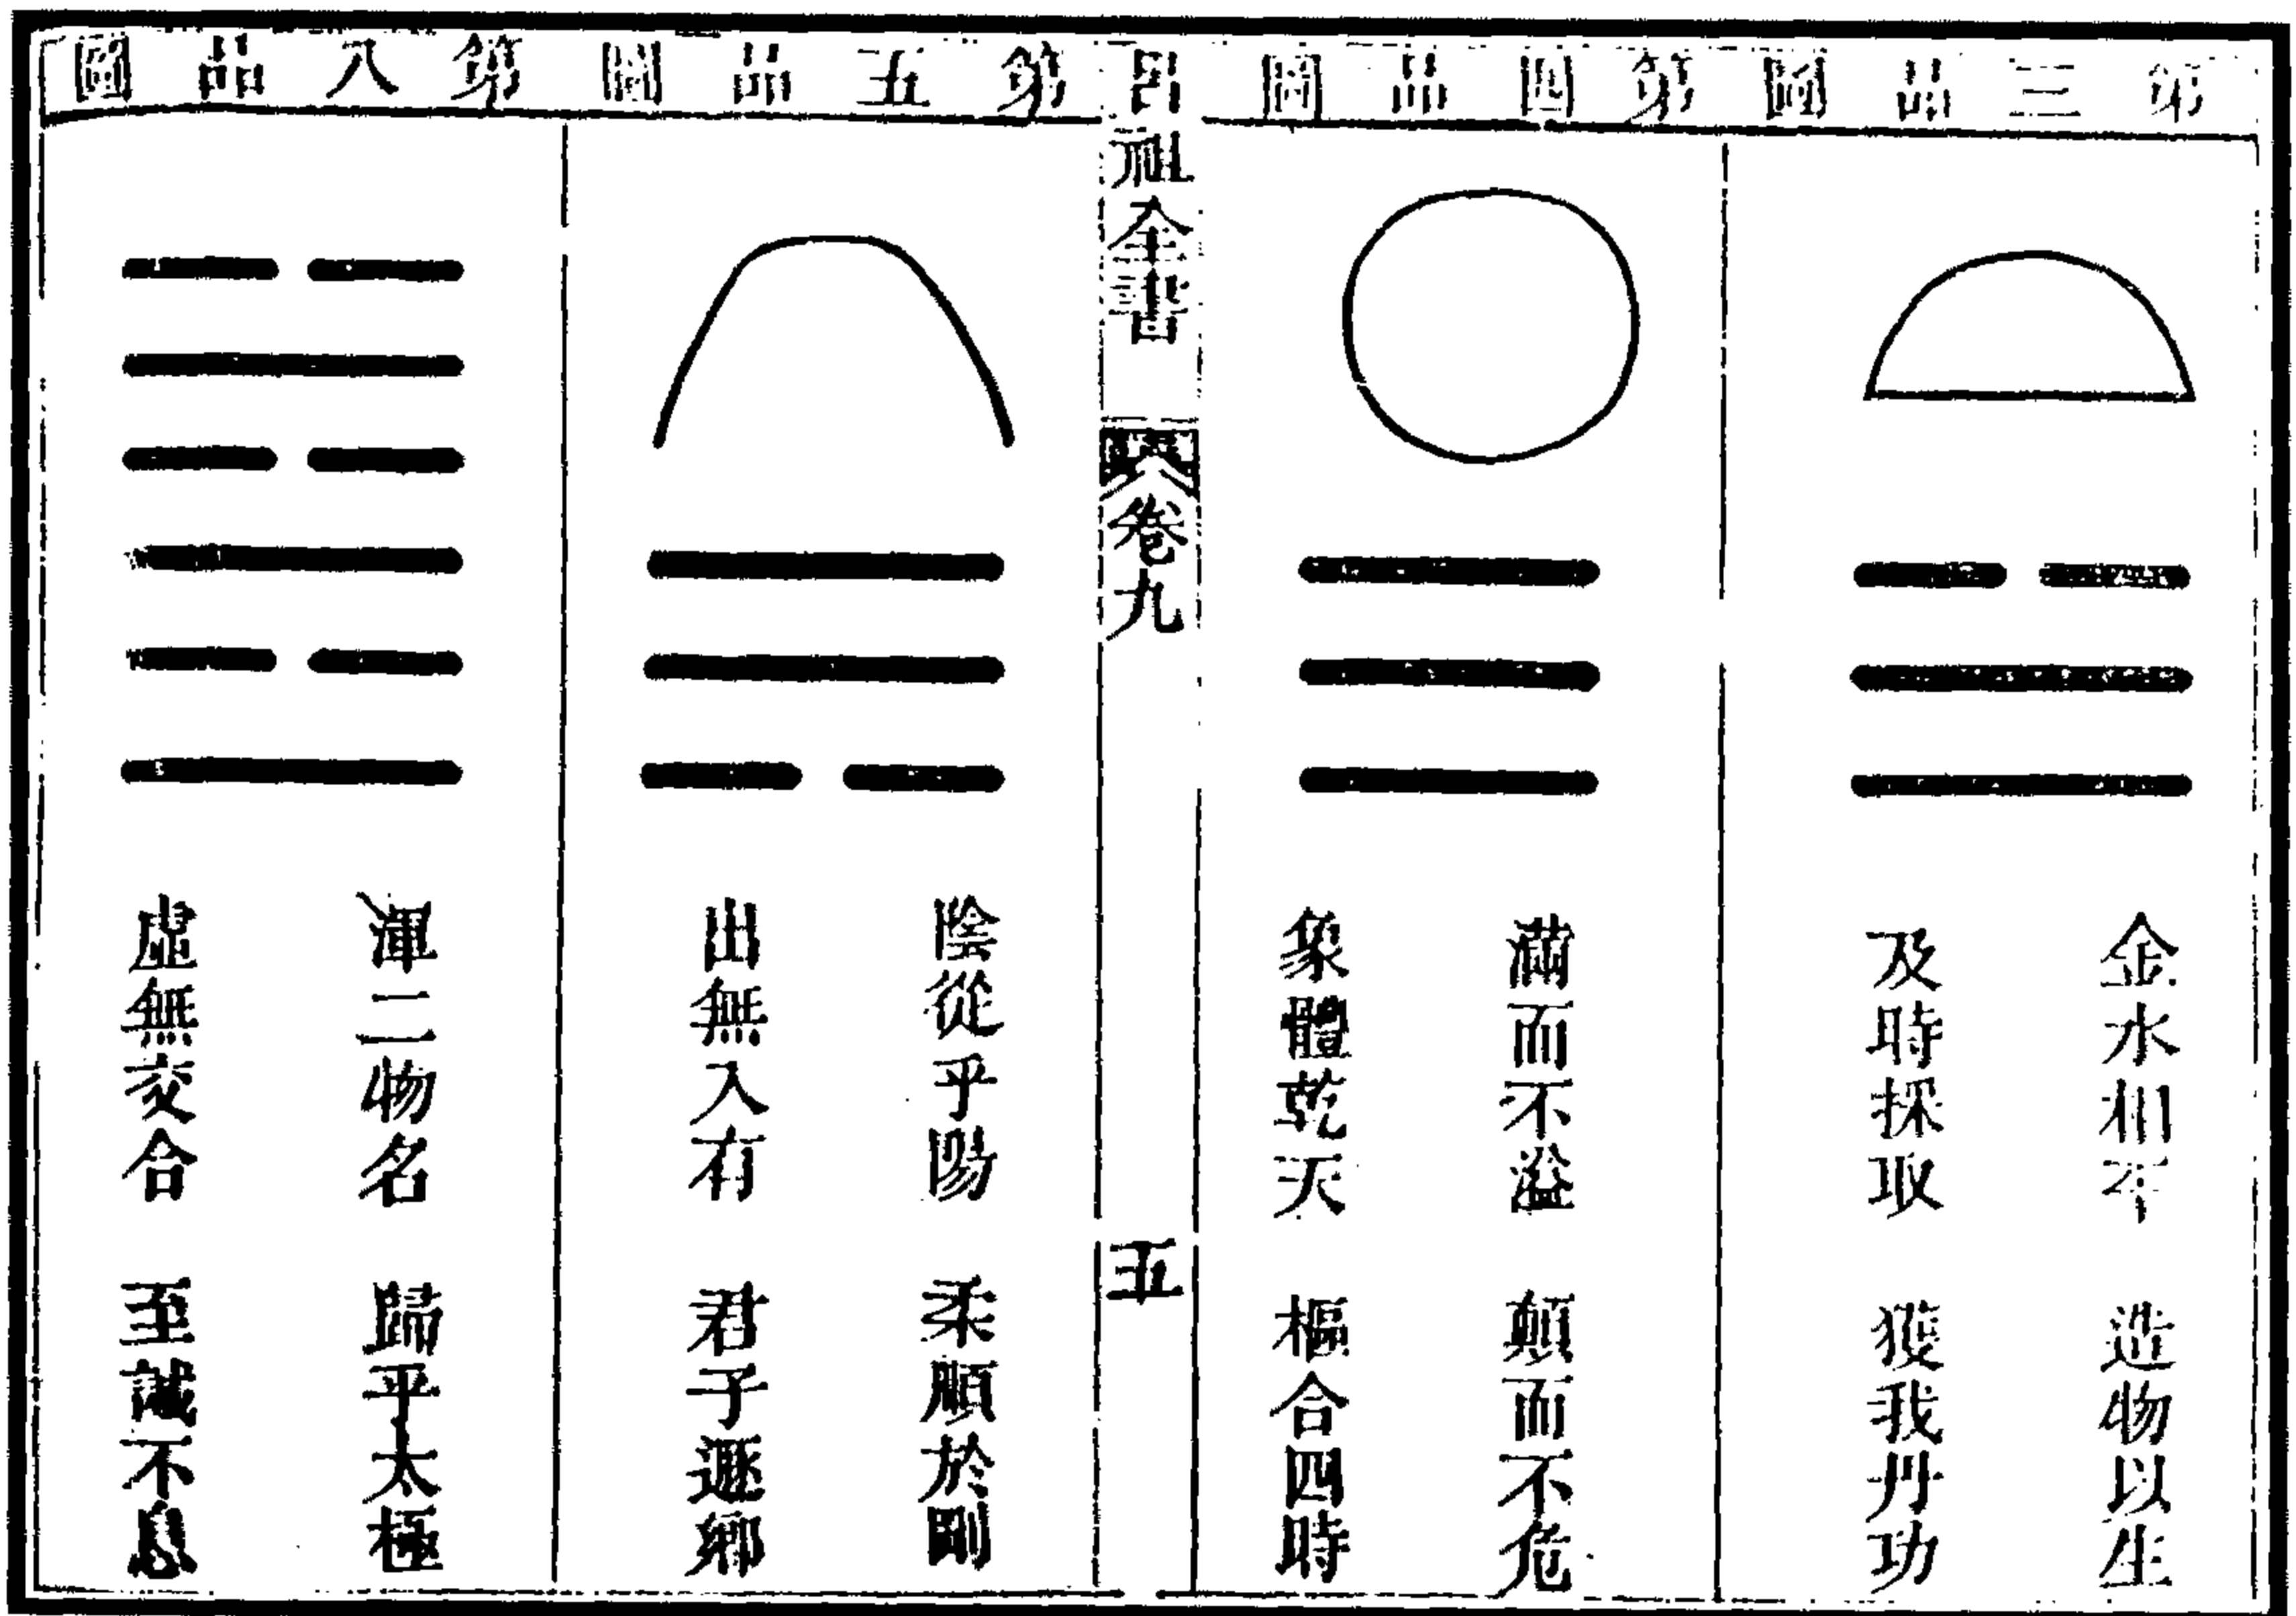 第三品圖
金水相
造物以生
及時採取
獲我丹功
第四品圖
滿而不溢
顛而不危
象體乾天
樞合四時
呂祖全書
卷九
五
第五品圖
陰從乎陽
柔順於剛
出無入有
君子遯鄉
第八品圖
渾二物名
歸乎太極
虛無交合
至誠不息